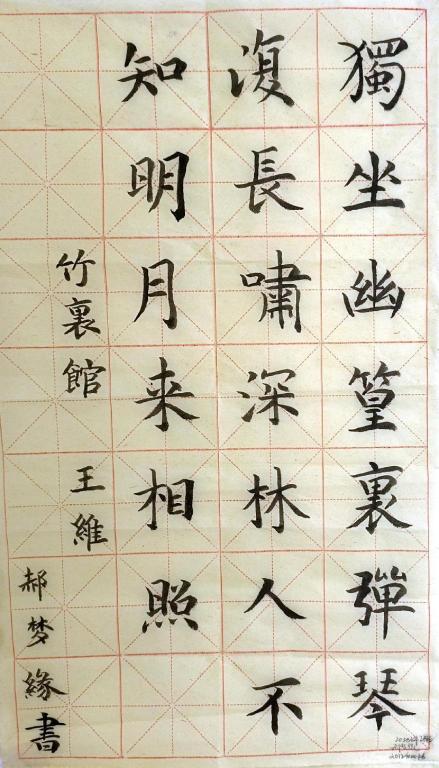 獨坐幽篁裏彈琴
復長嘯深林人不
知明月来相照
竹裏館
王維
郝梦緣書